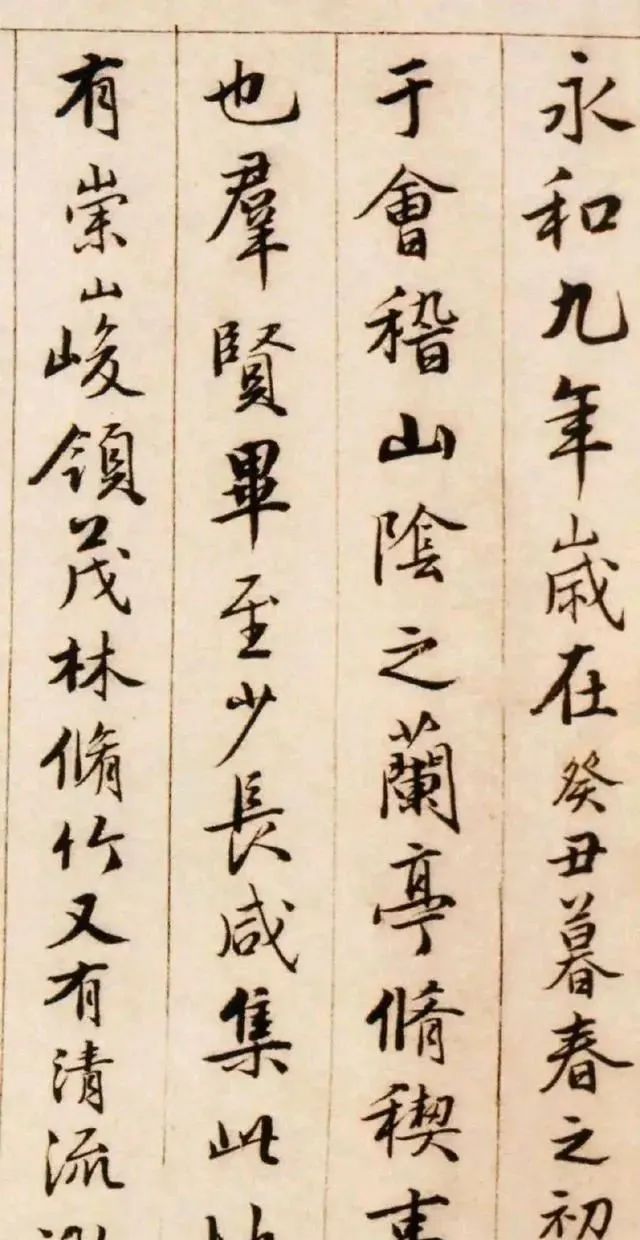 永和九年歲在癸丑暮春之初
于會稽山陰之蘭亭脩稧事
也羣賢畢至少長咸集此地
有崇山峻領茂林脩竹又有清流